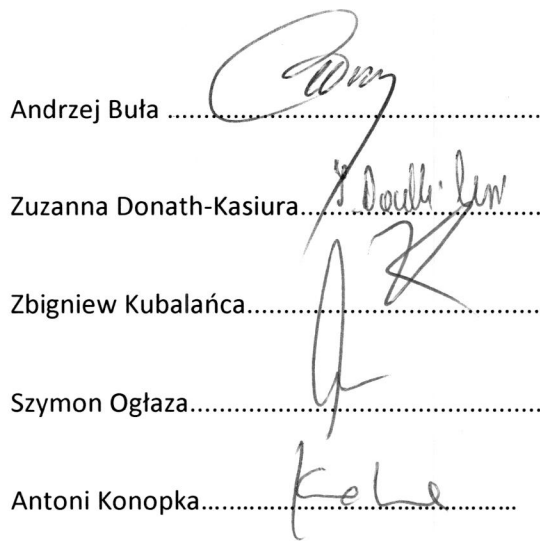 Andrzej Buła ..................................................
Zuzanna Donath-Kasiura................................
Zbigniew Kubalańca.......................................
Szymon Ogłaza...............................................
Antoni Konopka..........................................